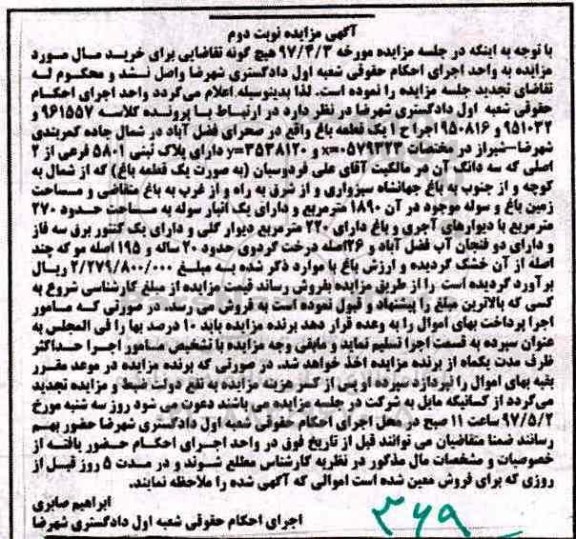 آگهی مزایده نوبت دوم
با توجه به اینکه در جلسه مزایده مورخه ۹۷/۳/۳ هیچ گونه تقاضایی برای خرید مال مورد
مزایده به واحد اجرای احکام حقوقی شعبه اول دادگستری شهرضا واصل نشد و محکوم له
تقاضای تجدید جلسه مزایده را نموده است. لذا بدینوسیله اعلام می‌گردد واحد اجرای احکام
حقوقی شعبه اول دادگستری شهرضا در نظر دارد در ارتباط با پرونده کلاسه ۹۶۱۵۵۷ و
۹۵۱۰۳۲ و ۹۵۰۸۱۶ اجرا ح ۱ یک قطعه باغ واقع در صحرای فضل آباد در شمال جاده کمربندی
شهرضا-شیراز در مختصات x=۰۵۷۹۳۲۳ و y=۳۵۳۸۱۲۰ دارای پلاک ثبتی ۵۸۰۱ فرعی از ۲
اصلی که سه دانگ آن در مالکیت آقای علی فردوسیان (به صورت یک قطعه باغ) که از شمال به
کوچه و از جنوب به باغ جهانشاه سبزواری و از شرق به راه و از غرب به باغ متقاضی و مساحت
زمین باغ و سوله موجود در آن ۱۸۹۰ مترمربع و دارای یک انبار سوله به مساحت حدود ۲۷۰
مترمربع با دیوارهای آجری و باغ دارای ۲۲۰ مترمربع دیوار گلی و دارای یک کنتور برق سه فاز
و دارای دو فنجان آب فضل آباد و ۲۶اصله درخت گردوی حدود ۲۰ ساله و ۱۹۵ اصله مو که چند
اصله از آن خشک گردیده و ارزش باغ با موارد ذکر شده به مبلغ ۲/۲۷۹/۸۰۰/۰۰۰ ریال
برآورد گردیده است را از طریق مزایده بفروش رساند قیمت مزایده از مبلغ کارشناسی شروع به
کسی که بالاترین مبلغ را پیشنهاد و قبول نموده است به فروش می رسد. در صورتی که مامور
اجرا پرداخت بهای اموال را به وعده قرار دهد برنده مزایده باید ۱۰ درصد بها را فی المجلس به
عنوان سپرده به قسمت اجرا تسلیم نماید و مابقی وجه مزایده با تشخیص مامور اجرا حداکثر
ظرف مدت یکماه از برنده مزایده اخذ خواهد شد. در صورتی که برنده مزایده در موعد مقرر
بقیه بهای اموال را نپردازد سپرده او پس از کسر هزینه مزایده به نفع دولت ضبط و مزایده تجدید
می‌گردد از کسانیکه مایل به شرکت در جلسه مزایده می باشند دعوت می شود روز سه شنبه مورخ
۹۷/۵/۲ ساعت ۱۱ صبح در محل اجرای احکام حقوقی شعبه اول دادگستری شهرضا حضور بهم
رسانند ضمنا متقاضیان می توانند قبل از تاریخ فوق در واحد اجرای احکام حضور یافته از
خصوصیات و مشخصات مال مذکور در نظریه کارشناس مطلع شوند و در مدت ۵ روز قبل از
روزی که برای فروش معین شده است اموالی که آگهی شده را ملاحظه نمایند.
ابراهیم صابری
اجرای احکام حقوقی شعبه اول دادگستری شهرضا
۳۶۹